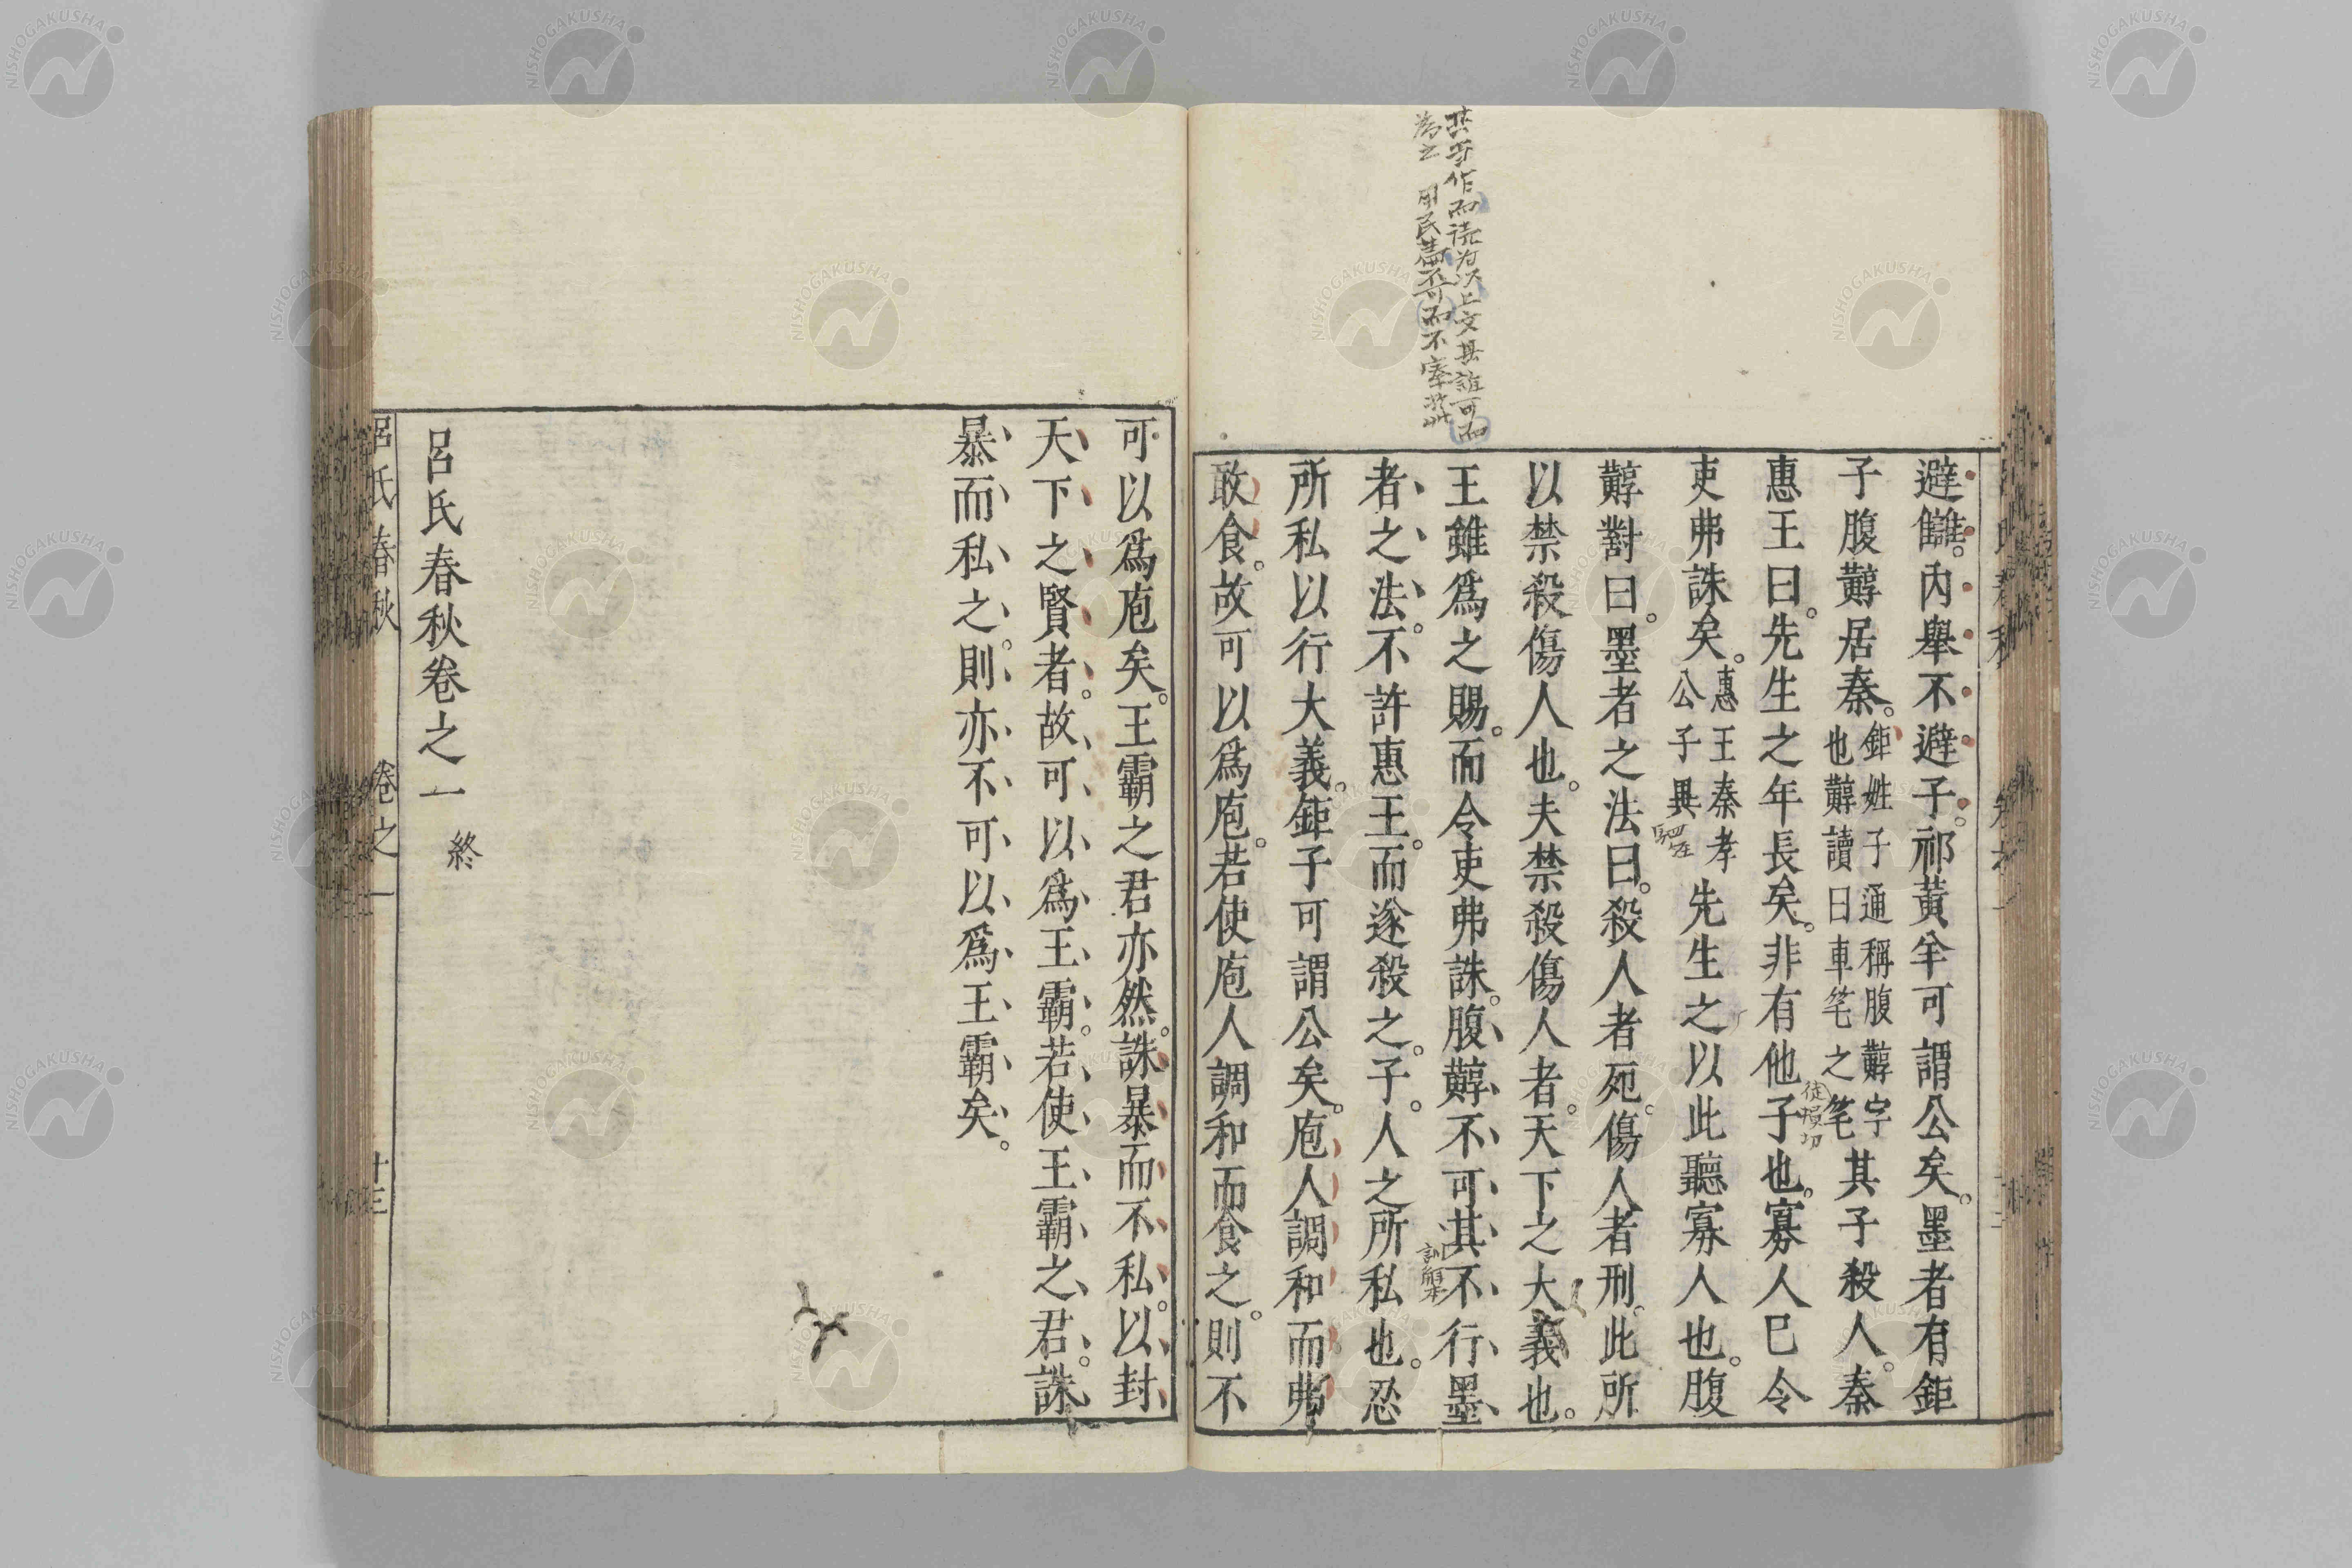 避讎。内舉不避子。祁黃羊可謂公矣。墨者有鉅
子腹䵍居秦。鉅姓子通稱腹䵍字也䵍讀曰車笔之笔其子殺人。秦
惠王曰。先生之年長矣。非有他子也。寡人已令
吏弗誅矣。惠王秦孝公子駟先生之以此聽寡人也。腹
䵍對曰。墨者之法曰。殺人者死。傷人者刑。此所
以禁殺傷人也。夫禁殺傷人者。天下之大義也。
王雖爲之賜。而令吏弗誅。腹䵍不可其不行墨
者之法。不許惠王。而遂殺之。子。人之所私也。忍
所私以行大義。鉅子可謂公矣。庖人調和而弗
敢食。故可以爲庖。若使庖人調和而食之。則不
可以爲庖矣。王霸之君亦然。誅暴而不私。以封
天下之賢者。故可以爲王霸。若使王霸之君。誅
暴而私之。則亦不可以爲王霸矣。
呂氏春秋卷之一 終
呂氏春秋 卷之一 十三
NISHOGAKUSHA